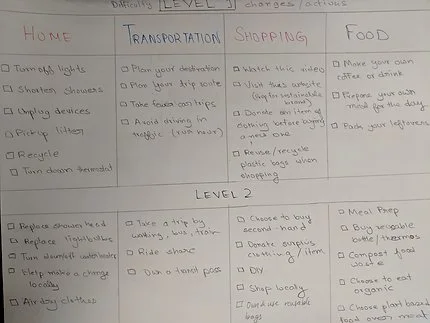 Difficulty LEVEL 1 changes/actions
HOME
TRANSPORTATION
SHOPPING
FOOD
Turn off lights
Shorten showers
Unplug devices
Pick up litter
Recycle
Turn down thermostat
Plan your destination
Plan your trip route
Take fewer car trips
Avoid driving in
traffic (rush hour)
Watch this video
Visit this website
(for sustainable
brand)
Donate an item of
clothing before buying
a new one
Reuse/recycle
plastic bags when
shopping
Make your own
coffee or drink
Prepare your own
meal for the day
Pack your leftovers
LEVEL 2
Replace shower head
Replace lightbulbs
Turn down/off water heater
Help make a change
locally
Air dry clothes
Take a trip by
walking, bus, train
Ride share
Own a transit pass
Choose to buy
second-hand
Donate surplus
clothing/item
DIY
Shop locally
Own & use reusable
bags
Meal Prep
Buy reusable
bottle/thermos
Compost food
waste
Choose to eat
organic
Choose plant based
food over meat